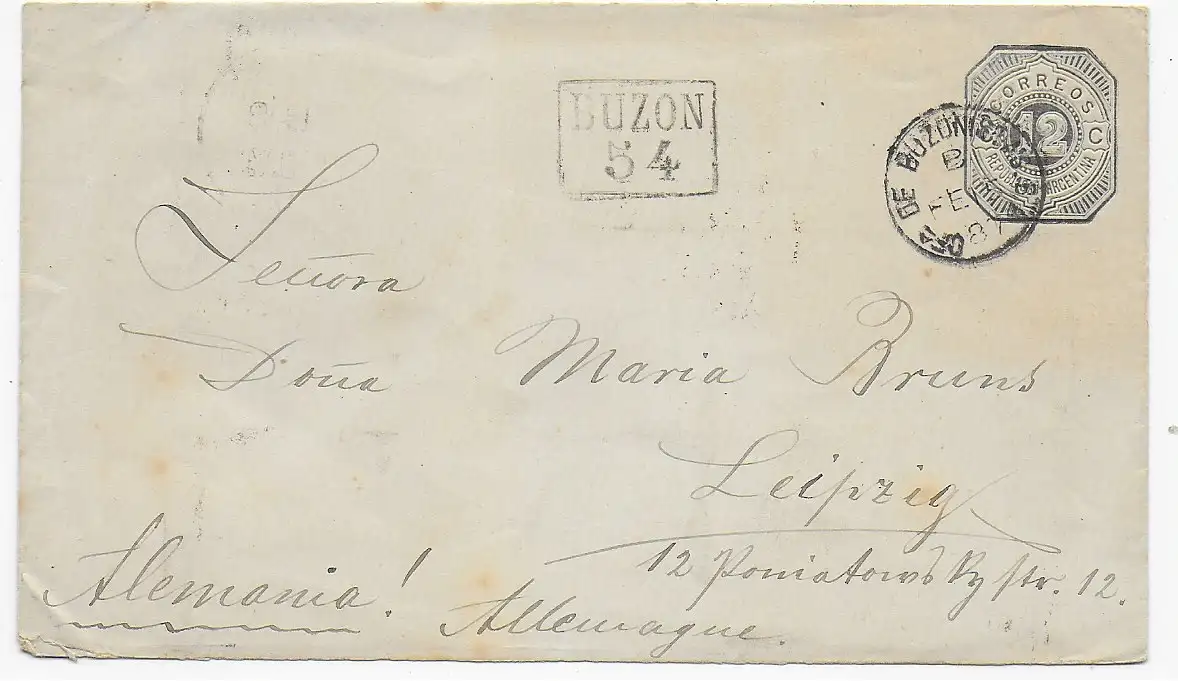 BUZON
54
CORREOS
12 C
REPUBLICA ARGENTINA
DE BUZONISTAS
FE
87
Señora
Doña Maria Bruns
Leipzig
12 Poniatowsky str. 12.
Alemania!
Allemagne.